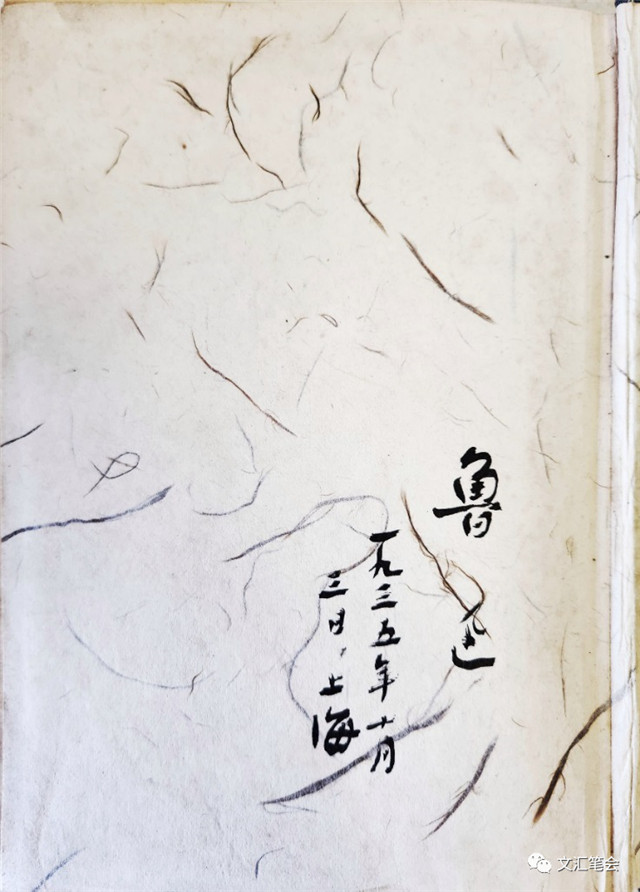 鲁迅
一九三五年十月
三日，上海
文汇笔会